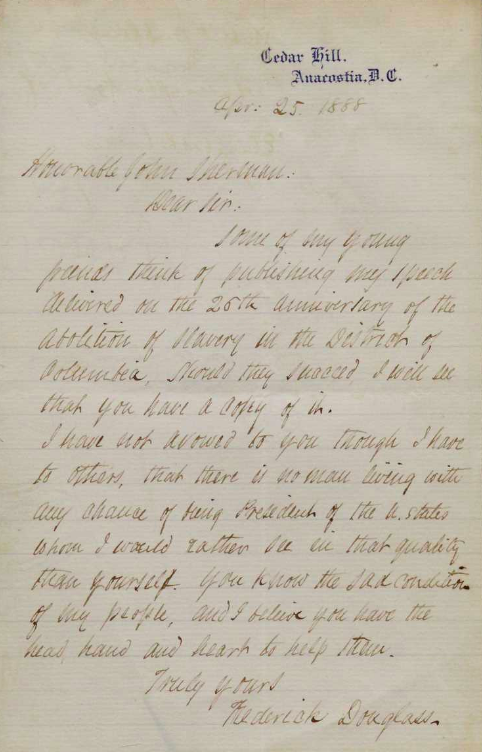 Cedar Hill.
Anacostia, D.C.
Apr: 25. 1888
Honorable John Sherman:
Dear Sir:
Some of my young
friends think of publishing my speech
delivered on the 26th anniversary of the
abolition of slavery in the District of
Columbia, Should they succeed, I will see
that you have a copy of it.
I have not avowed to you though I have
to others, that there is no man living with
any chance of being President of the U. States
whom I would rather see in that quality
than yourself. You know the sad condition
of my people, and I believe you have the
head, hand and heart to help them.
Truly yours
Frederick Douglass.